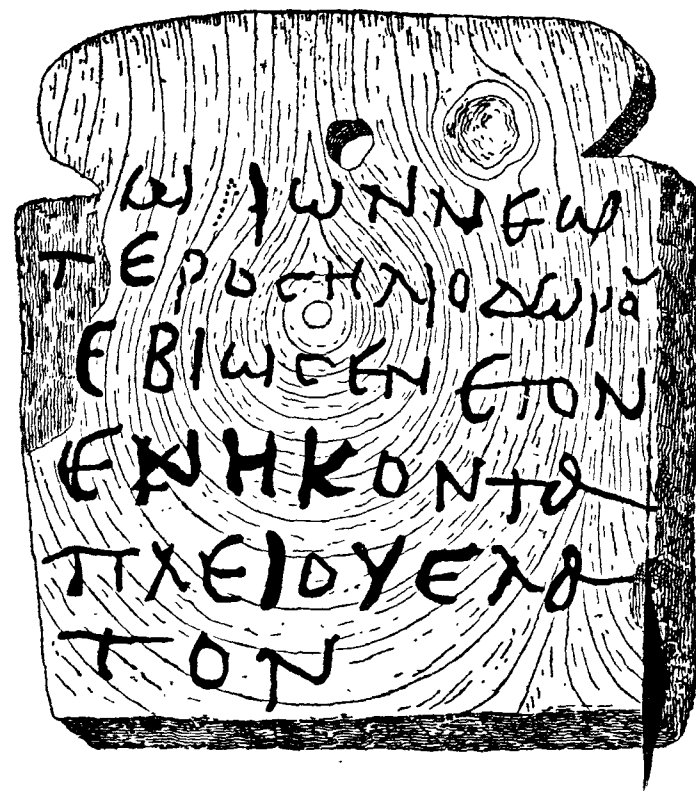 ωριων νεω
τερος ηλιοδωρα
εβιωσεν ετον
ενηκοντα
πλειου ελα
τον